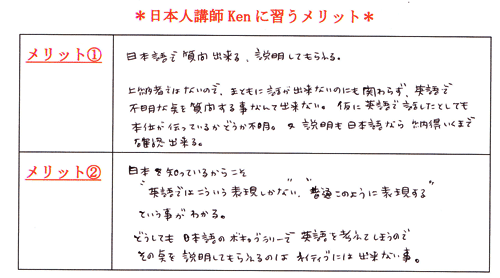 ＊日本人講師Kenに習うメリット＊
メリット①
日本語で質問出来る、説明してもらえる。
上級者ではないので、まともに話が出来ないのにも関わらず、英語で
不明な点を質問する事なんて出来ない。仮に英語で話したとしても
本位が伝っているかどうか不明。又説明も日本語なら納得いくまで
確認出来る。
メリット②
日本を知っているからこそ
"英語ではこういう表現しかない"、"普通このように表現する"
という事がわかる。
どうしても日本語のボキャブラリーで英語を考えてしまうので
その点を説明してもらえるのはネイティブには出来ない事。